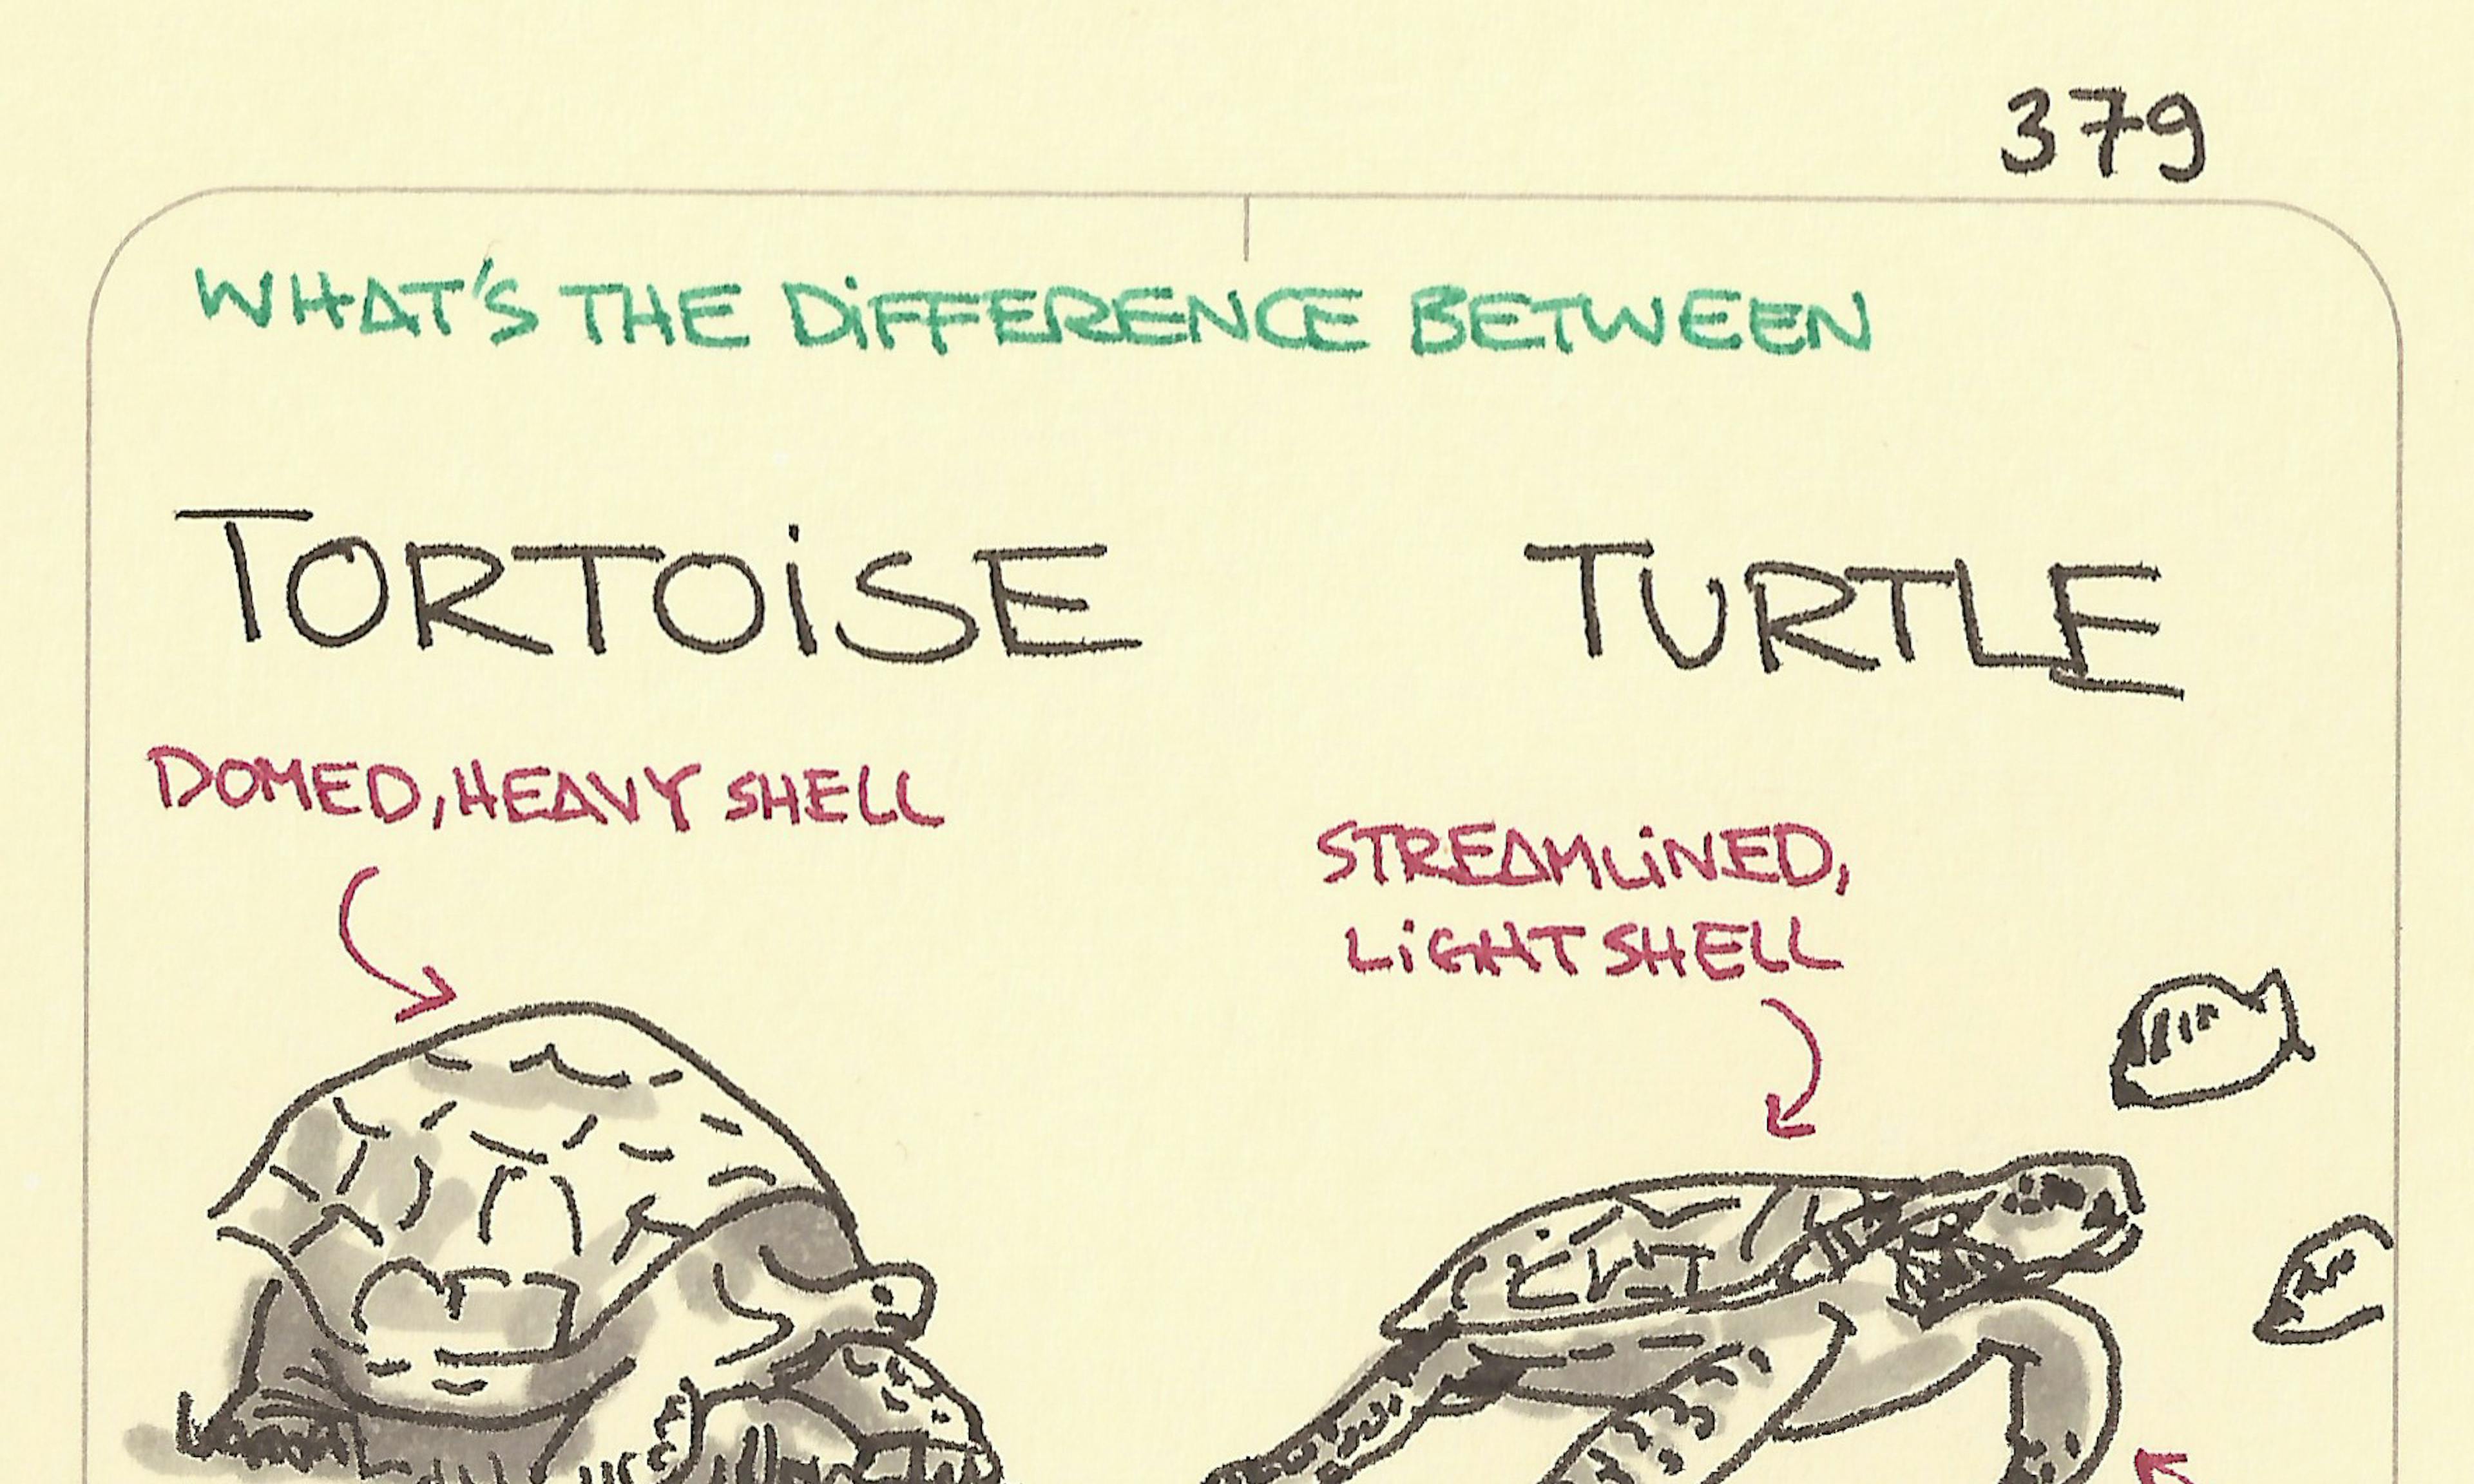 379
WHAT'S THE DIFFERENCE BETWEEN
TORTOISE
TURTLE
DOMED, HEAVY SHELL
STREAMLINED,
LIGHT SHELL